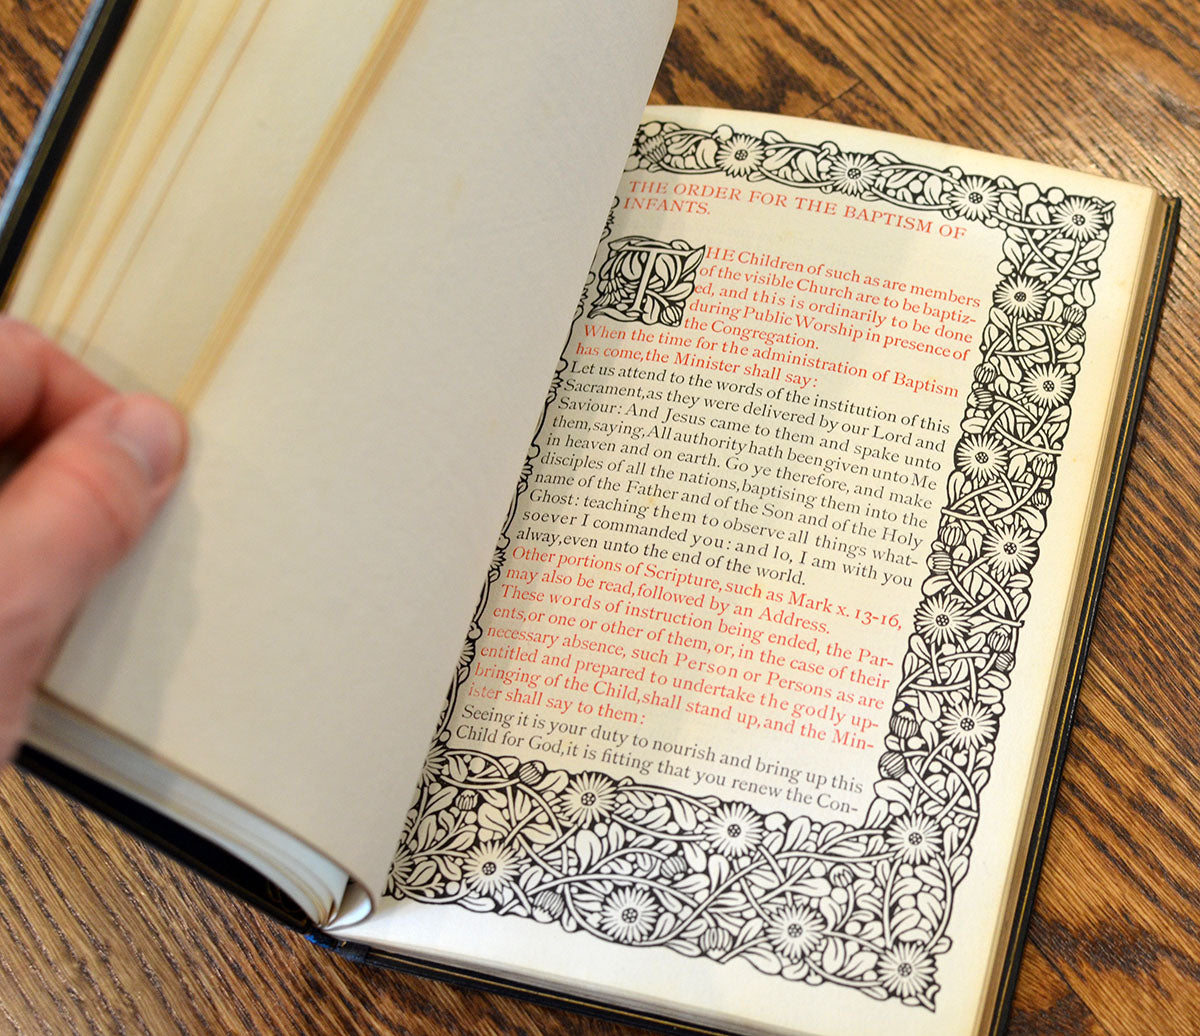 THE ORDER FOR THE BAPTISM OF
INFANTS.
THE Children of such as are members
of the visible Church are to be baptiz-
ed, and this is ordinarily to be done
during Public Worship in presence of
the Congregation.
When the time for the administration of Baptism
has come, the Minister shall say:
Let us attend to the words of the institution of this
Sacrament, as they were delivered by our Lord and
Saviour: And Jesus came to them and spake unto
them, saying, All authority hath been given unto Me
in heaven and on earth. Go ye therefore, and make
disciples of all the nations, baptising them into the
name of the Father and of the Son and of the Holy
Ghost: teaching them to observe all things what-
soever I commanded you: and lo, I am with you
alway, even unto the end of the world.
Other portions of Scripture, such as Mark x. 13-16,
may also be read, followed by an Address.
These words of instruction being ended, the Par-
ents, or one or other of them, or, in the case of their
necessary absence, such Person or Persons as are
entitled and prepared to undertake the godly up-
bringing of the Child, shall stand up, and the Min-
ister shall say to them:
Seeing it is your duty to nourish and bring up this
Child for God, it is fitting that you renew the Con-